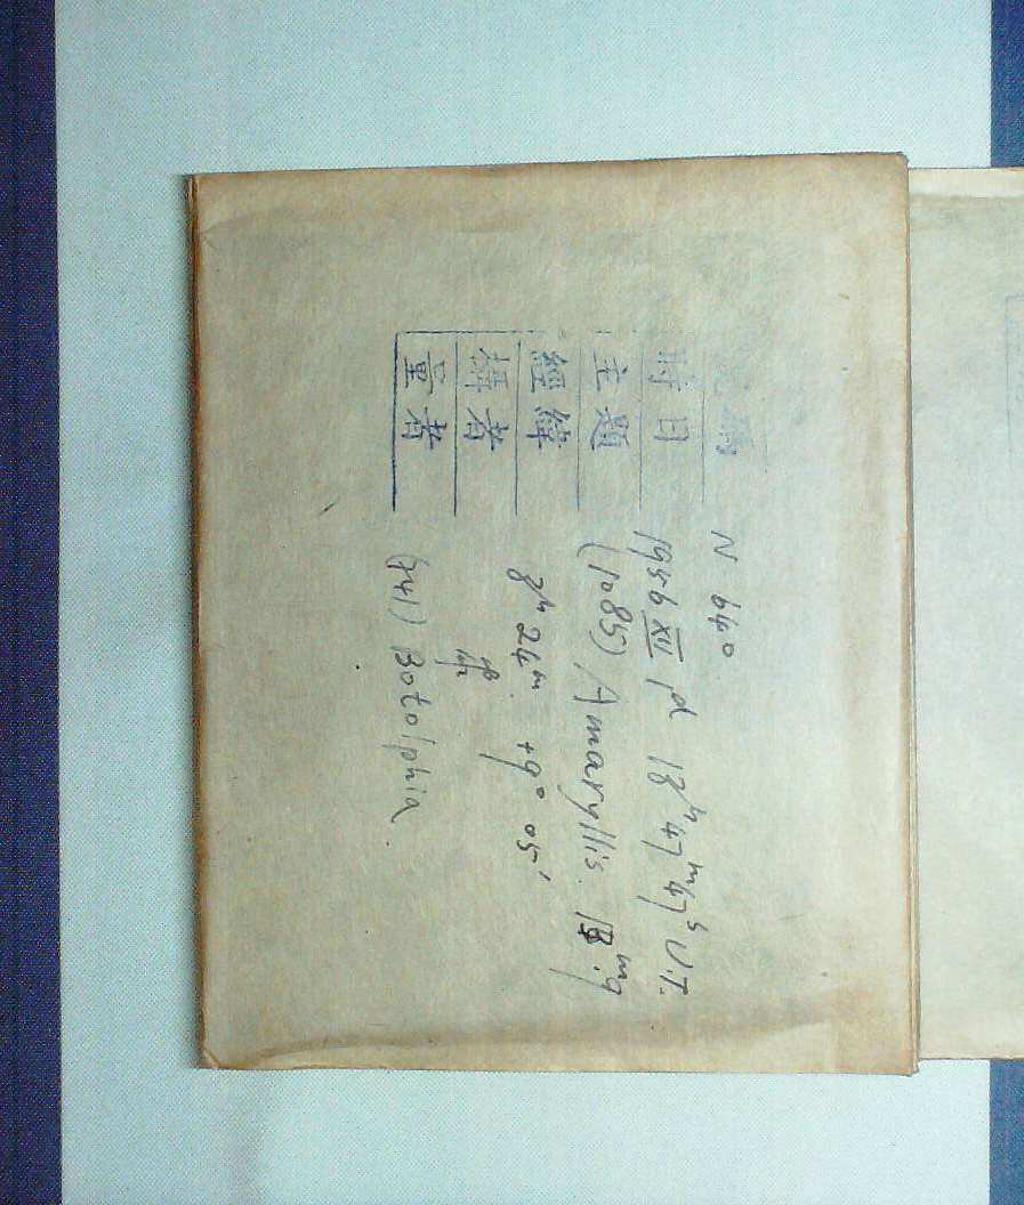 號
N 640
時日 1956 XII 1d 18h 47m 47s U.T.
主題 (1085) Amaryllis. mg
經緯 24m +9° 05'
攝者
量者 (741) Botolphia